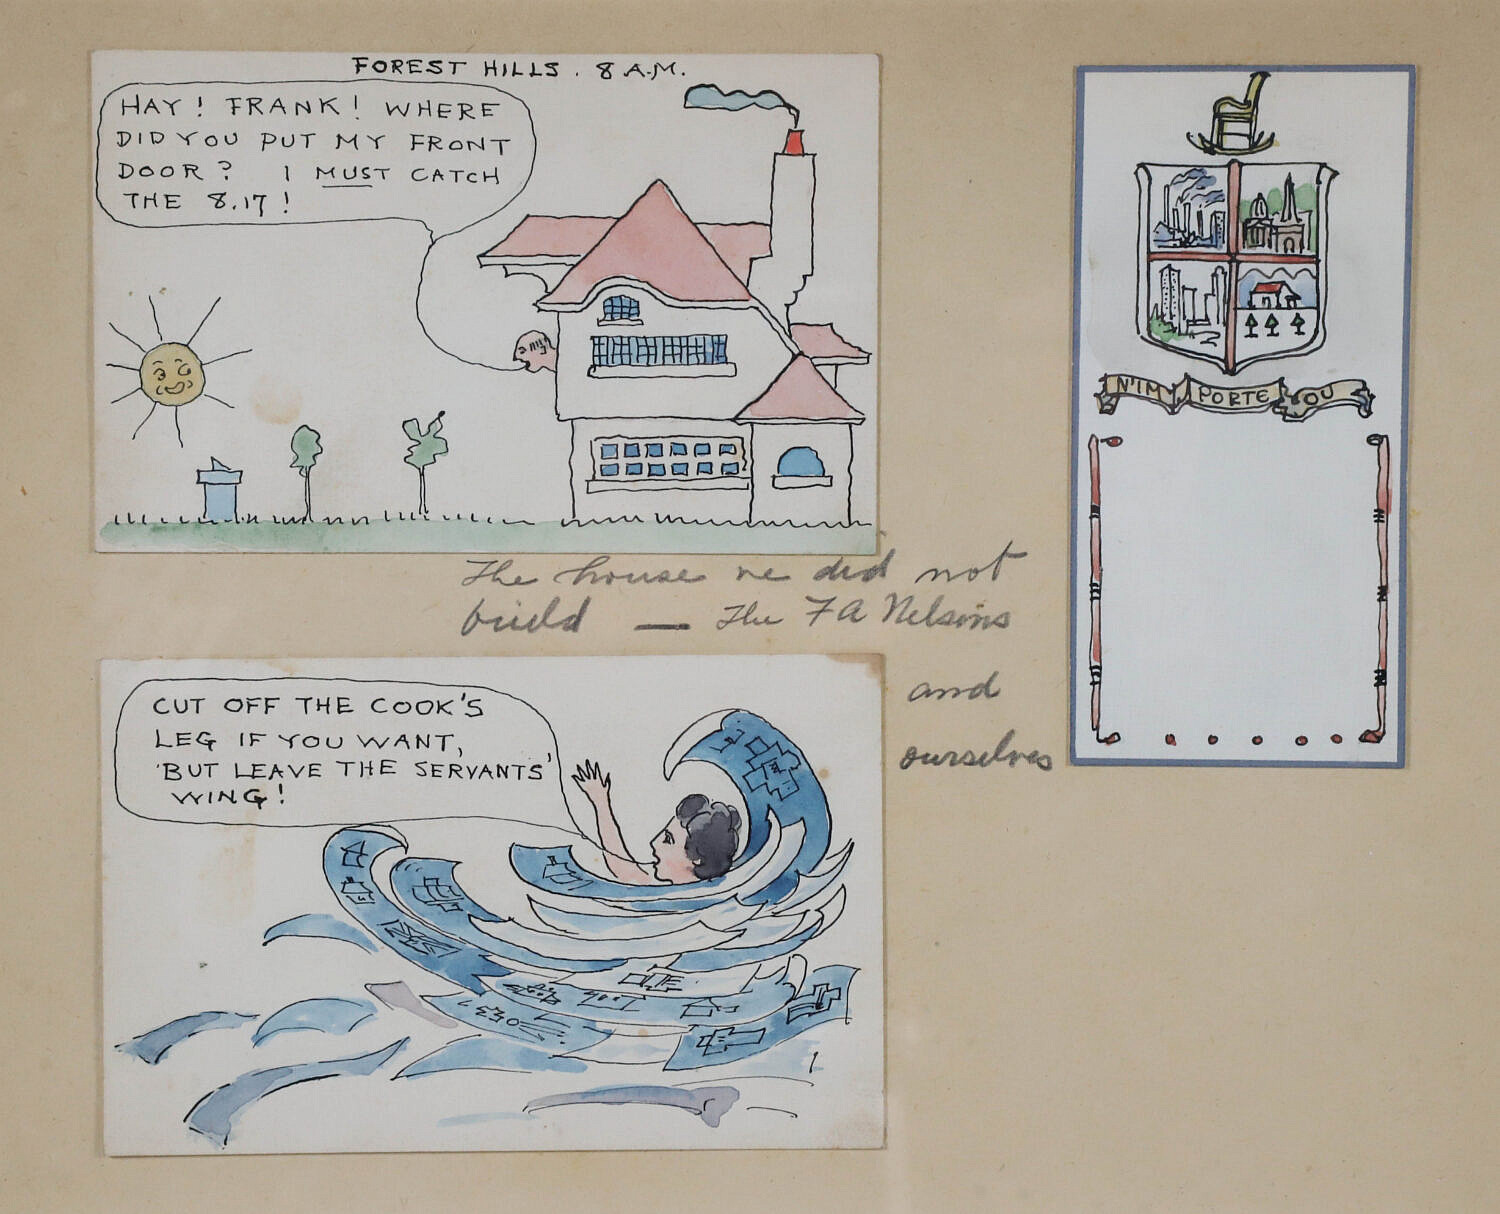 FOREST HILLS. 8 A.M.
HAY! FRANK! WHERE
DID YOU PUT MY FRONT
DOOR? I MUST CATCH
THE 8.17!
The house we did not
build — The F A Nelsons
and
ourselves
CUT OFF THE COOK'S
LEG IF YOU WANT,
BUT LEAVE THE SERVANTS'
WING!
N'IM PORTE OU